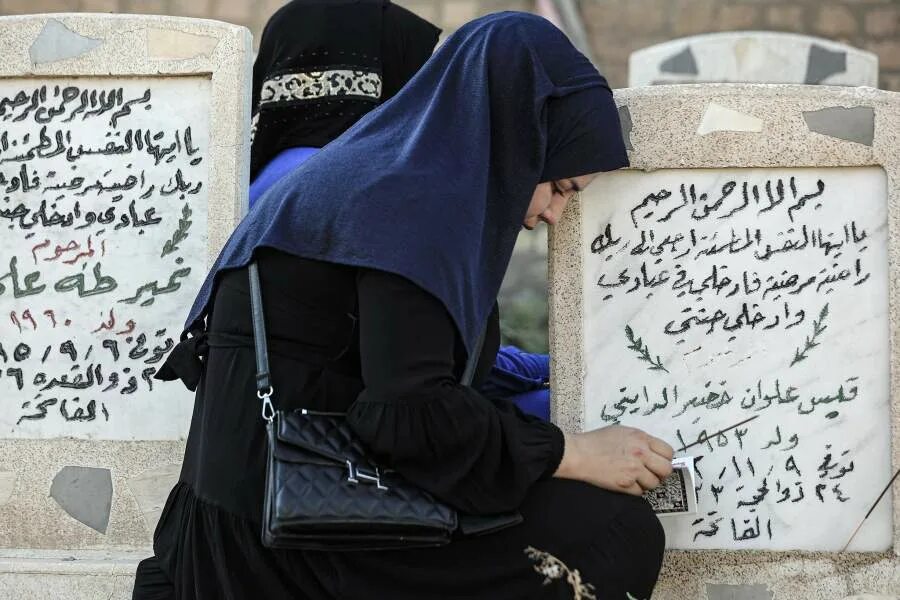 بسم الله الرحمن الرحيم
يا ايتها النفس المطمئنة ارجعي الى ربك
راضية مرضية فادخلي في عبادي
وادخلي جنتي
قيس علوان خضير الدايني
ولد ١٩٥٣
توفي ٩/١١/
٢٤ ذو الحجة
الفاتحة
بسم الله الرحمن الرحيم
يا ايتها النفس المطمئنة
ربك راضية مرضية
عبادي وادخلي
المرحوم
نمير طه
ولد ١٩٦٠
توفي ٩/٩/
ذو القعدة
الفاتحة